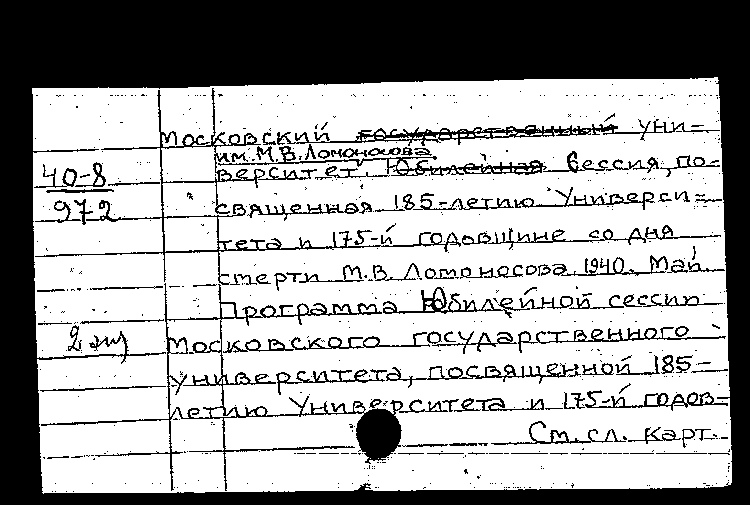 Московский государственный уни=
им. М.В. Ломоносова
верситет. Юбилейная сессия, по-
40-8
972
священная 185-летию Универси-
тета и 175-й годовщине со дня
смерти М.В. Ломоносова. 1940. Май.
Программа Юбилейной сессии
2 экз
Московского государственного
университета, посвященной 185-
летию Университета и 175-й годов=
См. сл. карт.